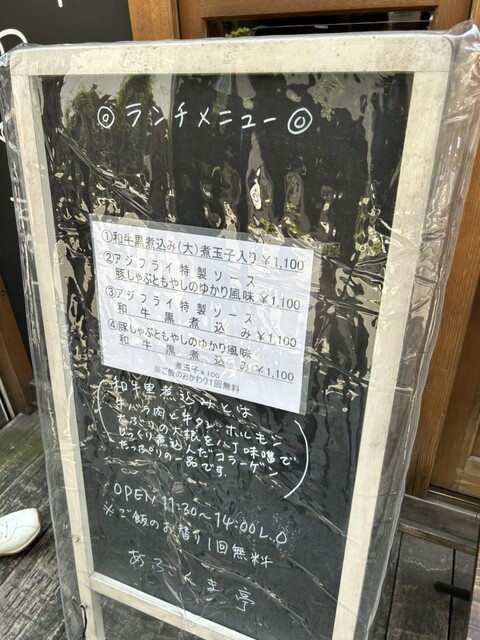 ◎ランチメニュー◎
①和牛黒煮込み(大)煮玉子入り ¥1,100
②アジフライ特製ソース
豚しゃぶともやしのゆかり風味 ¥1,100
③アジフライ特製ソース
和牛黒煮込み ¥1,100
④豚しゃぶともやしのゆかり風味
和牛黒煮込み ¥1,100
煮玉子 ¥100
※ご飯のおかわり1回無料
和牛黒煮込みとは
牛バラ肉と牛タン、ホルモン
大根を八丁味噌で
じっくり煮込んだコラーゲン
たっぷりの一品です。
OPEN 11:30～14:00 L.O
※ご飯のお替り1回無料
あぶくま亭